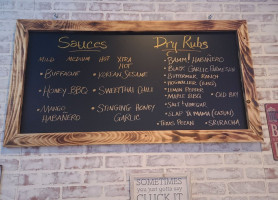 Sauces
MILD MEDIUM HOT XTRA HOT
• BUFFALO
• KOREAN SESAME
• HONEY BBQ
• SWEET THAI CHILI
• MANGO HABANERO
• STINGING HONEY GARLIC
Dry Rubs
• MANGO HABANERO
• BLACK GARLIC PARMESAN
• BUTTERMILK RANCH
• LEMON PEPPER
• MAPLE BBQ
• OLD BAY
• SALT VINEGAR
• SLAP YA MAMA (CAJUN)
• SRIRACHA
SOMETIMES
you just gotta say
CLUCK IT